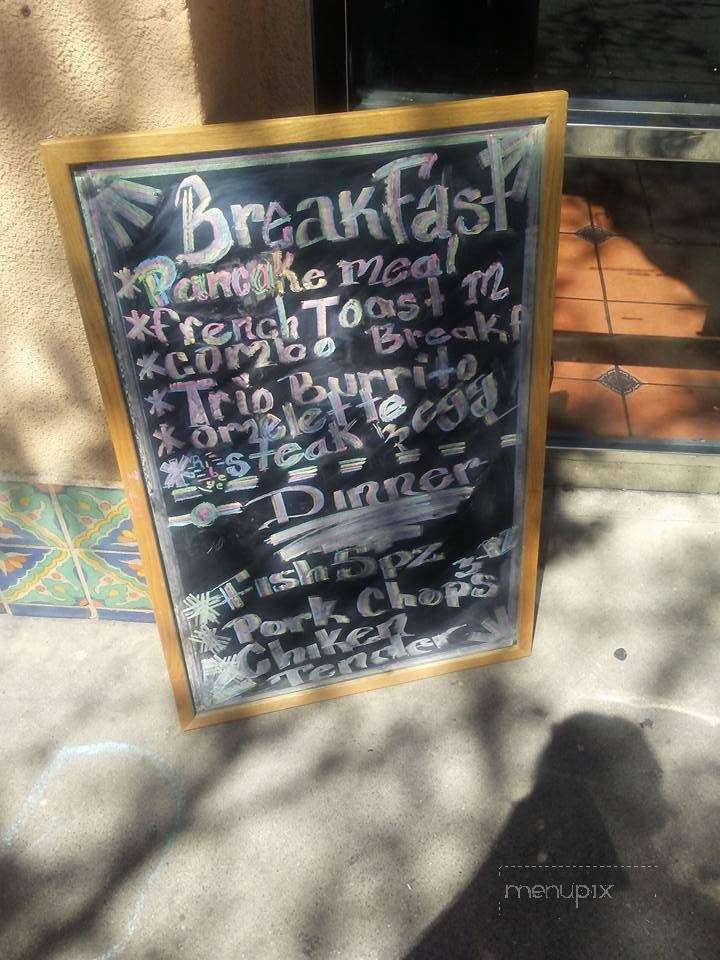 Breakfast
*Pancake meal
*french Toast M
*combo Breakf
*Trio Burrito
*omelette
*Ribeye steak n egg
Dinner
*Fish 5pz
*Pork Chops 3 PZ
*Chiken
Tender
menupix